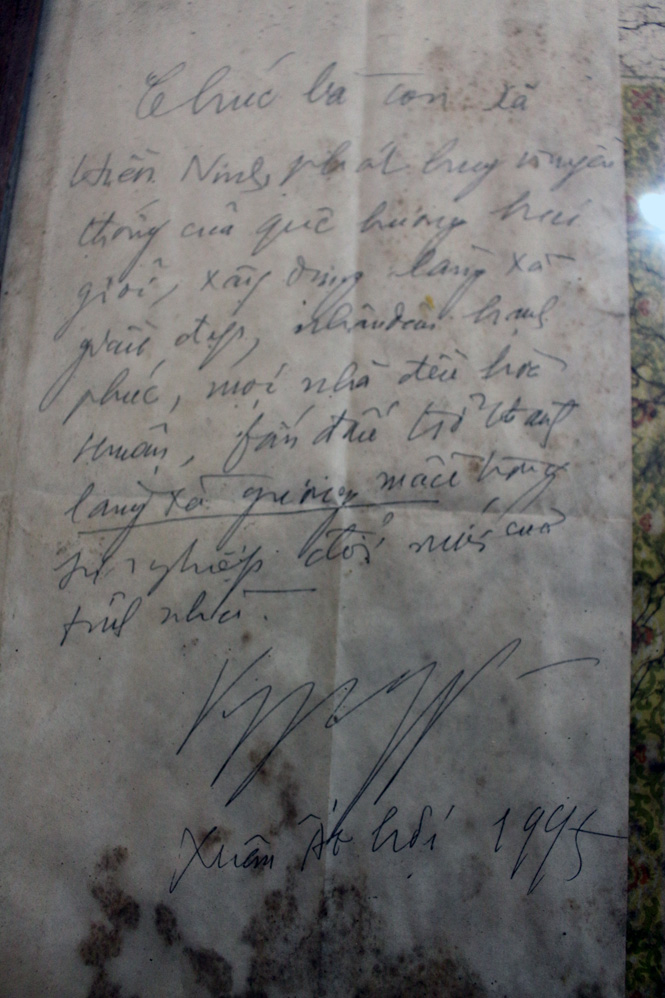 Chúc bà con xã
Hiền Ninh, phát huy truyền
thống của quê hương hai
giỏi, xây dựng làng xã
giàu đẹp, nhân dân hạnh
phúc, mọi nhà đều hòa
thuận, fấn đấu trở thành
làng xã gương mẫu trong
sự nghiệp đổi mới của
tỉnh nhà.
Xuân Ất hợi 1995